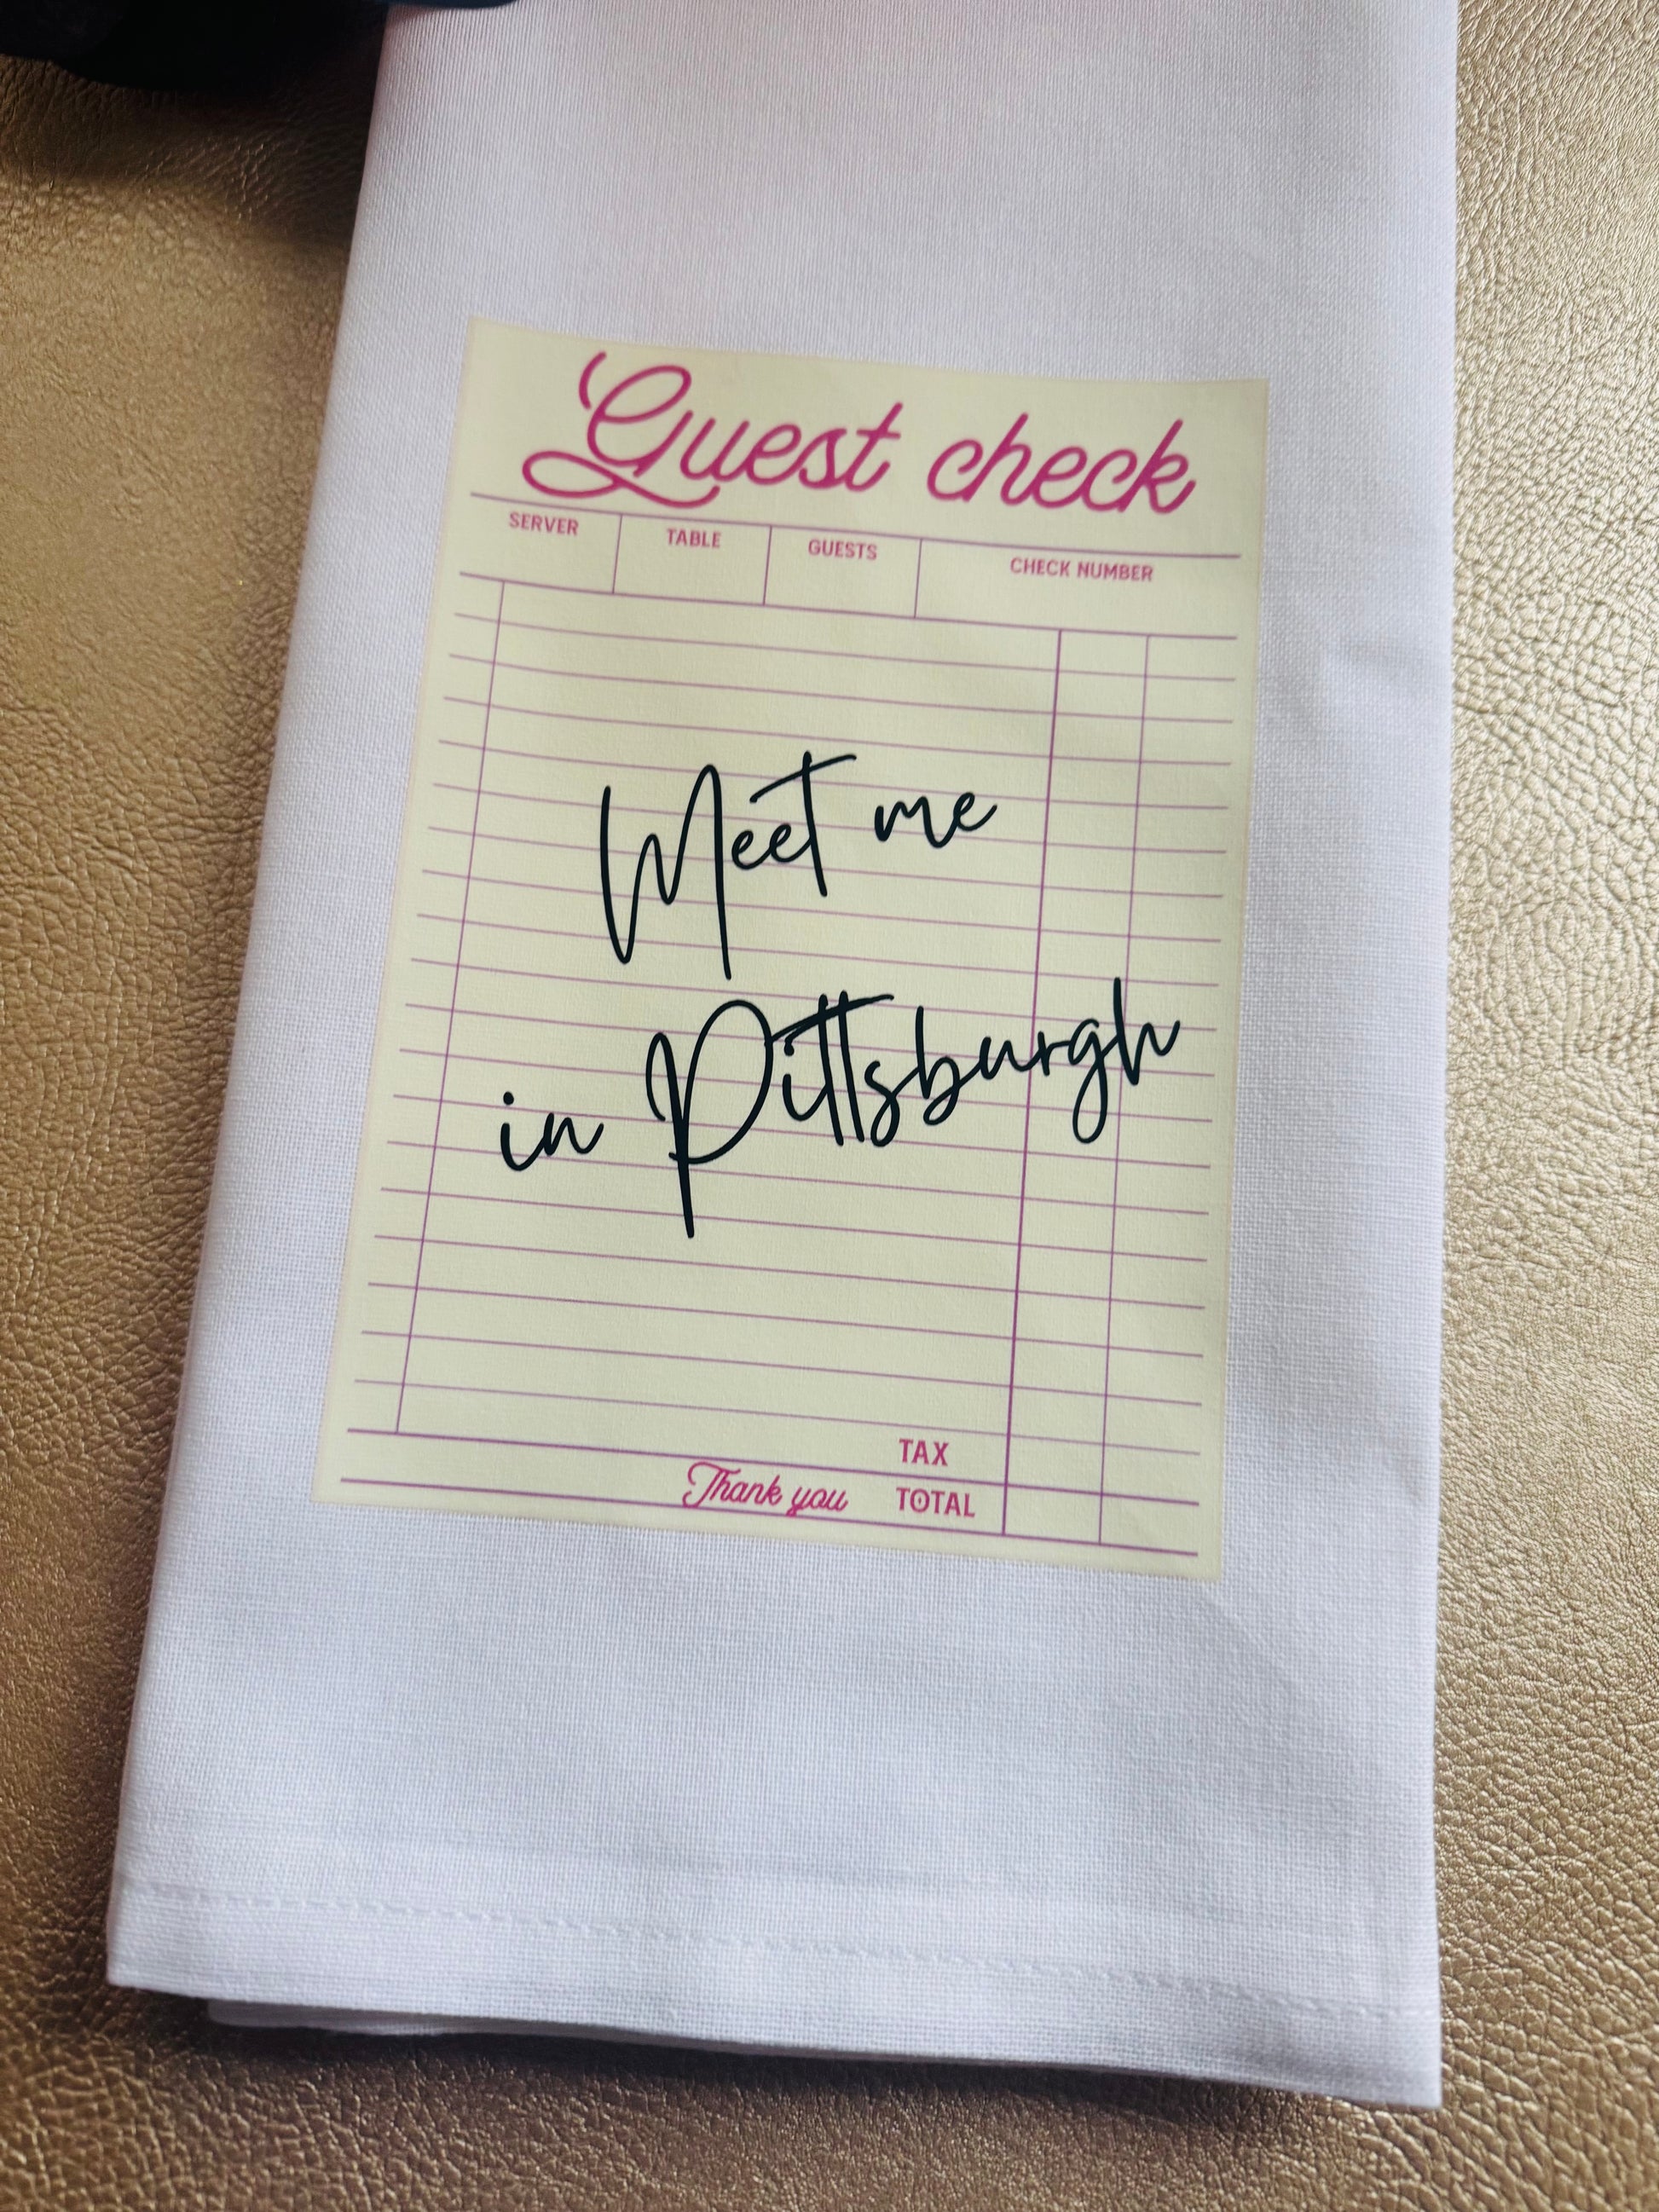 Guest check
SERVER TABLE GUESTS CHECK NUMBER
Meet me
in Pittsburgh
TAX
Thank you TOTAL